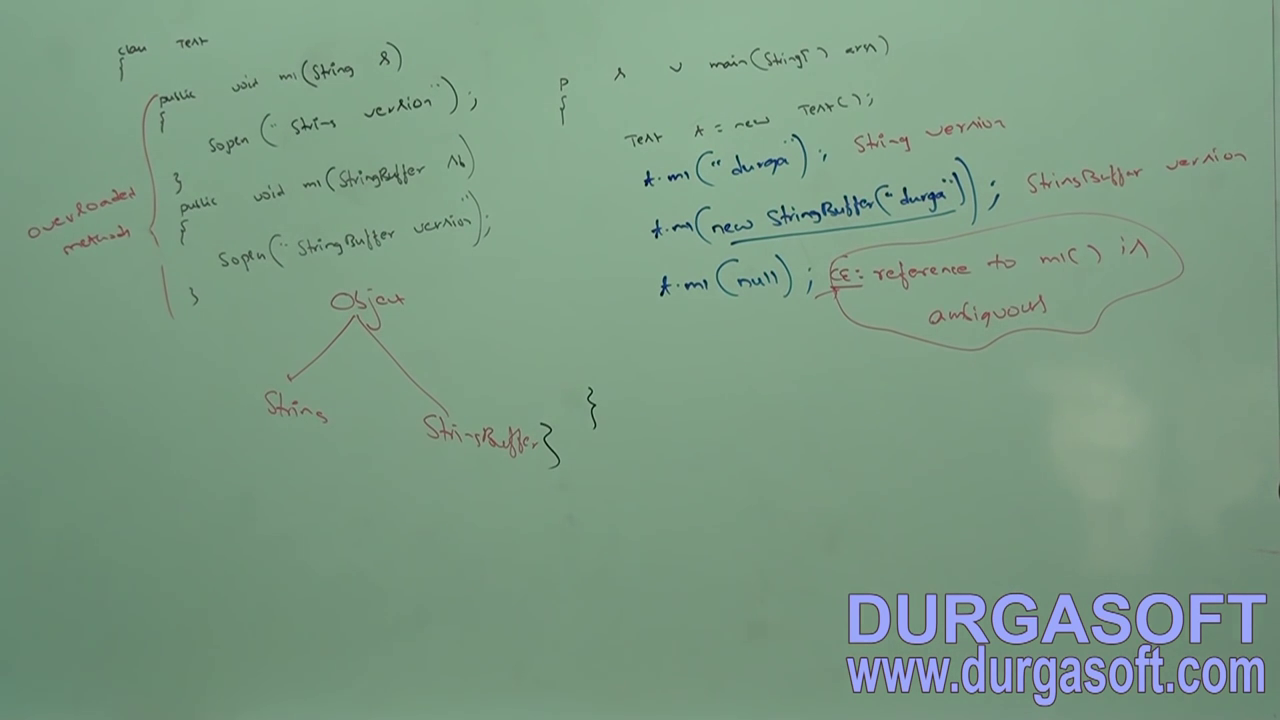 class Test
{
public void m1(String s)
{
sopln("String version");
}
public void m1(StringBuffer sb)
{
sopln("StringBuffer version");
}
overloaded
methods
Object
String
StringBuffer
}
}
p s v main(String[] args)
{
Test t = new Test();
t.m1("durga"); String version
t.m1(new StringBuffer("durga")); StringBuffer version
t.m1(null); CE: reference to m1() is
ambiguous
DURGASOFT
www.durgasoft.com